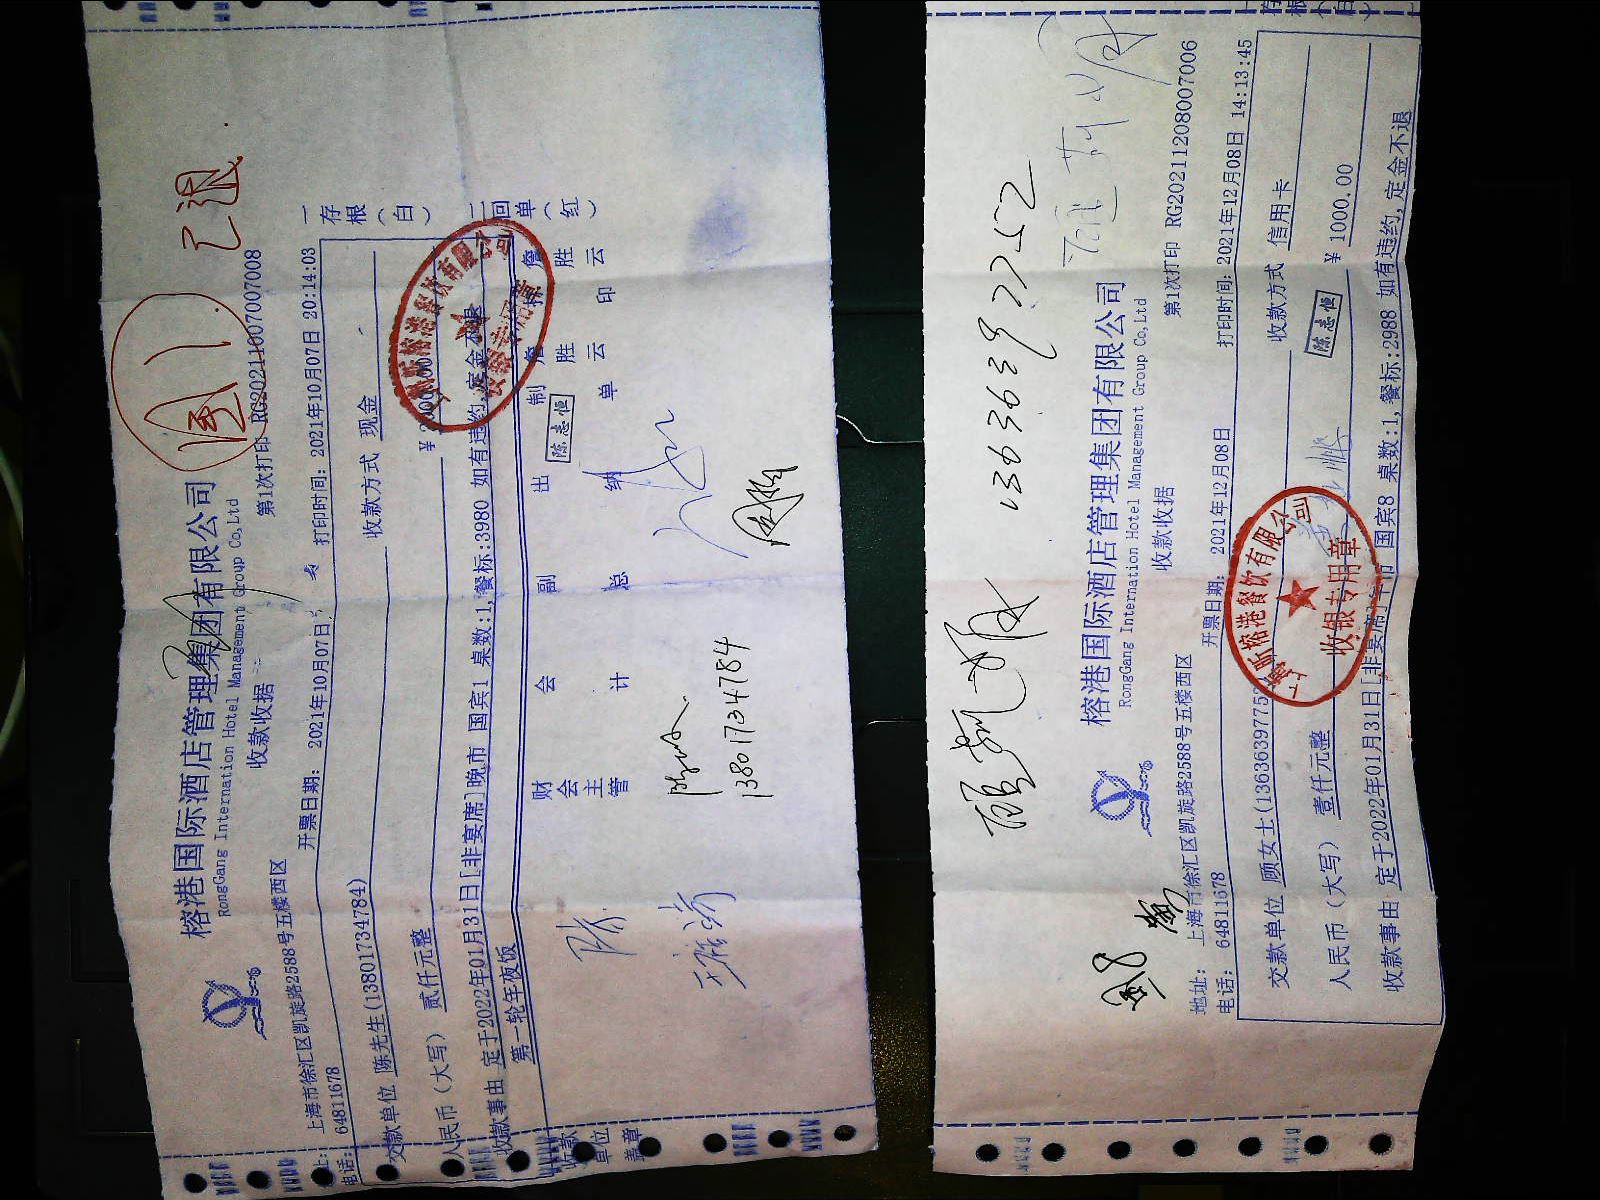 已退
榕港国际酒店管理集团有限公司
RongGang Internation Hotel Management Group Co,Ltd
收款收据
第1次打印 RG20211007007008
上海市徐汇区凯旋路2588号五楼西区
电话: 64811678
开票日期: 2021年10月07日
打印时间: 2021年10月07日 20:14:03
交款单位 陈先生(13801734784)
收款方式 现金
人民币(大写) 贰仟元整
收款事由 定于2022年01月31日[非宴席]晚市 国宾1 桌数:1,餐标:3980 如有违约,定金不退
第一轮年夜饭
一存根(白)
二回单(红)
收款单位盖章
财会主管
会计
副总
出纳
陈志恒
制单
詹胜云
詹胜云印
13801734784
13636397752
榕港国际酒店管理集团有限公司
RongGang Internation Hotel Management Group Co,Ltd
收款收据
第1次打印 RG20211208007006
地址: 上海市徐汇区凯旋路2588号五楼西区
电话: 64811678
开票日期: 2021年12月08日
打印时间: 2021年12月08日 14:13:45
交款单位 顾女士(1363639775
收款方式 信用卡
人民币(大写) 壹仟元整
¥ 1000.00
陈志恒
收款事由 定于2022年01月31日[非宴席]午市 国宾8 桌数:1,餐标:2988 如有违约,定金不退
收银专用章